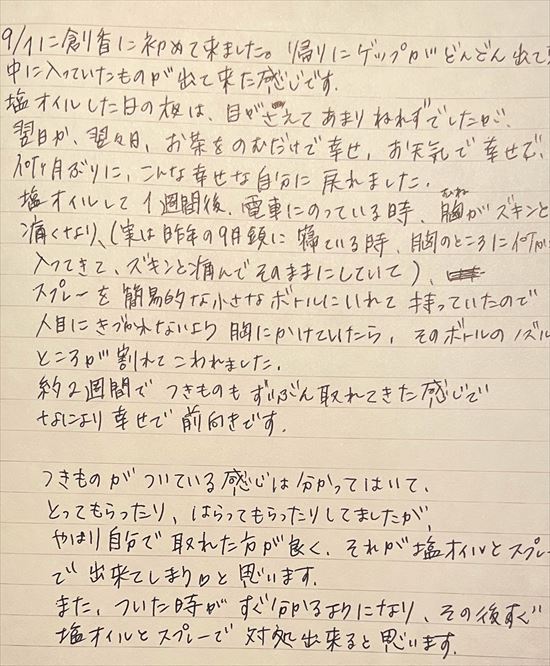 9/1に創香に初めて来ました。帰りにゲップがどんどん出て
中に入っていたものが出て来た感じです。
塩オイルした日の夜は、目がさえてあまりねれずでしたが、
翌日か、翌々日、お茶をのむだけで幸せ、お天気で幸せで、
何ヶ月ぶりに、こんな幸せな自分に戻れました。
塩オイルして1週間後、電車にのっている時、胸がズキンと
むね
痛くなり、(実は昨年の9月頃に寝ている時、胸のところに何か
入ってきて、ズキンと痛んでそのままにしていて)、
スプレーを簡易的な小さなボトルにいれて持っていたので
人目にきづかれないよう胸にかけていたら、そのボトルのノズル
ところが割れてこわれました。
約2週間でつきものもずいぶん取れてきた感じで
なにより幸せで前向きです。
つきものがついている感じは分かってはいて、
とってもらったり、はらってもらったりしてましたが、
やはり自分で取れた方が良く、それが塩オイルとスプレー
で出来てしまうと思います。
また、ついた時がすぐ分かるようになり、その後すぐ
塩オイルとスプレーで対処出来ると思います。